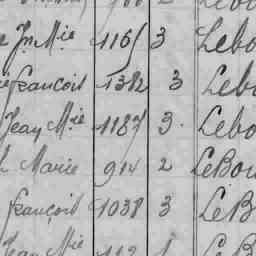 Jn Mie 1165 3 Lebo
françois 1382 3 Lebo
Jean Mie 1187 3. Lebo
Marie 914 2 LeBou
françois 1038 3 LeB
Jean Mie